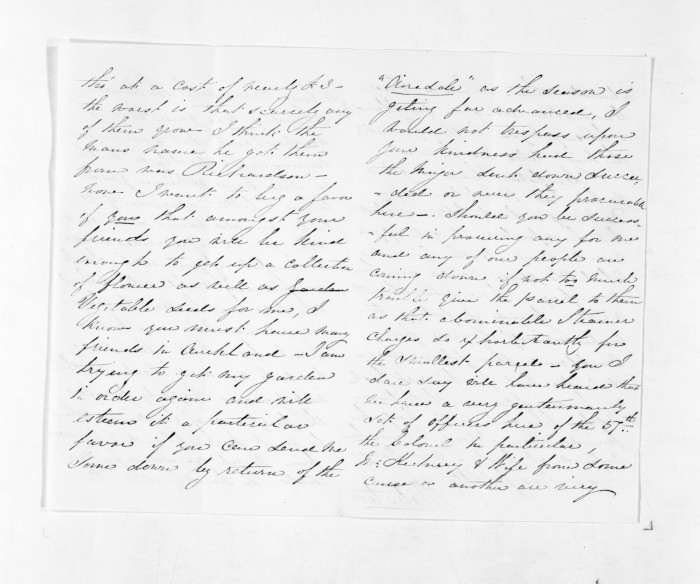 tho' at a cost of nearly £3 -
the worst is that scarcely any
of them grow I think the
mans name he got them
from was Richardson -
now I want to beg a favor
of you that amongst your
friends you will be kind
enough to get up a collection
of flower as well as garden
Vegitable seeds for me, I
know you must have many
friends in Auckland - I am
trying to get my garden
in order again and will
esteem it a particular
favor if you can send me
some down by return of the
"Airedale" as the season is
geting far advanced, I
would not trespass upon
your kindness had those
the Major sent down succe-
-ded or were they procurable
here -. Should you be success-
-ful in procuring any for me
and any of our people are
coming down if not too much
trouble give the parcel to them
as that abominable Steamer
charges so exhorbitantly for
the smallest parcel - you I
dare say will have heard that
we have a very gentlemanly
set of officers here of the 57th
the Colonel in particular,
& Wife from some
cause or another are very